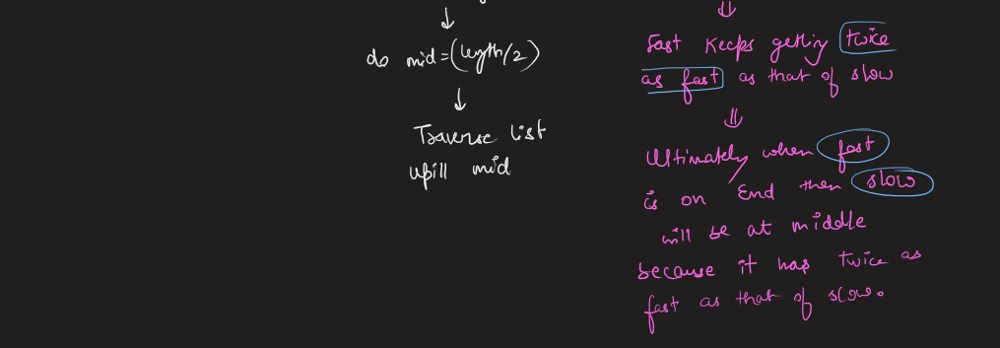 do mid=(length/2)
Traverse list
uptill mid
Fast keeps getting twice
as fast as that of slow
Ultimately when fast
is on End then slow
will be at middle
because it has twice as
fast as that of slow.